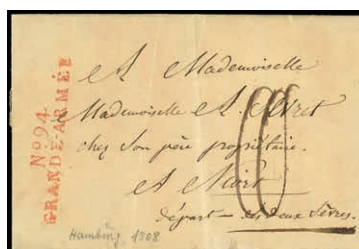 No 94
GRANDE-ARMÉE
A Mademoiselle
Mademoiselle A.
chez son père propriétaire.
A Niort
départ — des deux Sèvres.
Hambürg, 1808